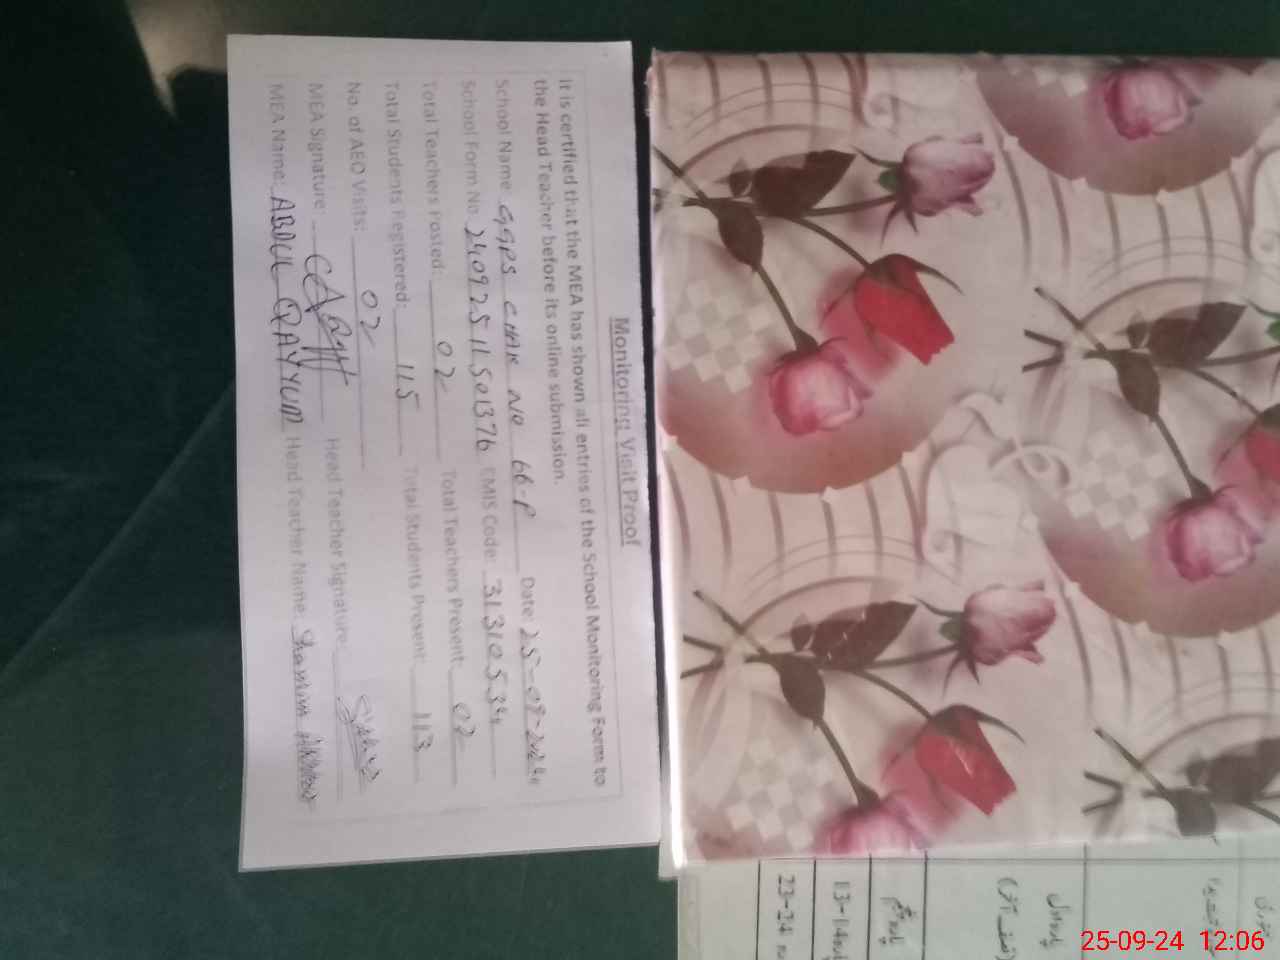 Monitoring Visit Proof
It is certified that the MEA has shown all entries of the School Monitoring Form to
the Head Teacher before its online submission.
School Name GGPS CHAK NO 66-P Date: 25-09-2024
School Form No. 24092511501376 EMIS Code: 31310534
Total Teachers Posted: 02 Total Teachers Present: 02
Total Students Registered: 115 Total Students Present: 113
No. of AEO Visits: 02
MEA Signature: Head Teacher Signature:
MEA Name: ABDUL QAYYUM Head Teacher Name: Shamim Akhtar
13-14
23-24
25-09-24 12:06